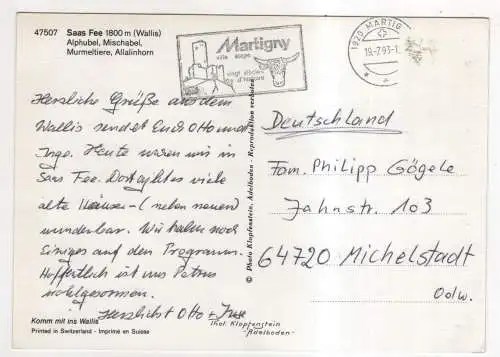 47507 Saas Fee 1800 m (Wallis)
Alphubel, Mischabel,
Murmeltiere, Allalinhorn
Martigny
ville étape
vingt siècles
d'histoire
1920 MARTIG
19.-7.93-1
Herzliche Grüße aus dem
Wallis sendet Euch Otto und
Inge. Heute waren wir in
Saas Fee. Dort gibt es viele
alte Häuser - (neben neuen)
wunderbar. Wir haben noch
Einiges auf dem Programm.
Hoffentlich ist uns Petrus
wohlgesonnen.
Herzlichst Otto + Inge
Komm mit ins Wallis
Printed in Switzerland - Imprimé en Suisse
© Photo Klopfenstein, Adelboden - Reproduktion verboten
Thol. Klopfenstein
"Adelboden"
Deutschland
Fam. Philipp Gögele
Jahnstr. 103
64720 Michelstadt
Odw.